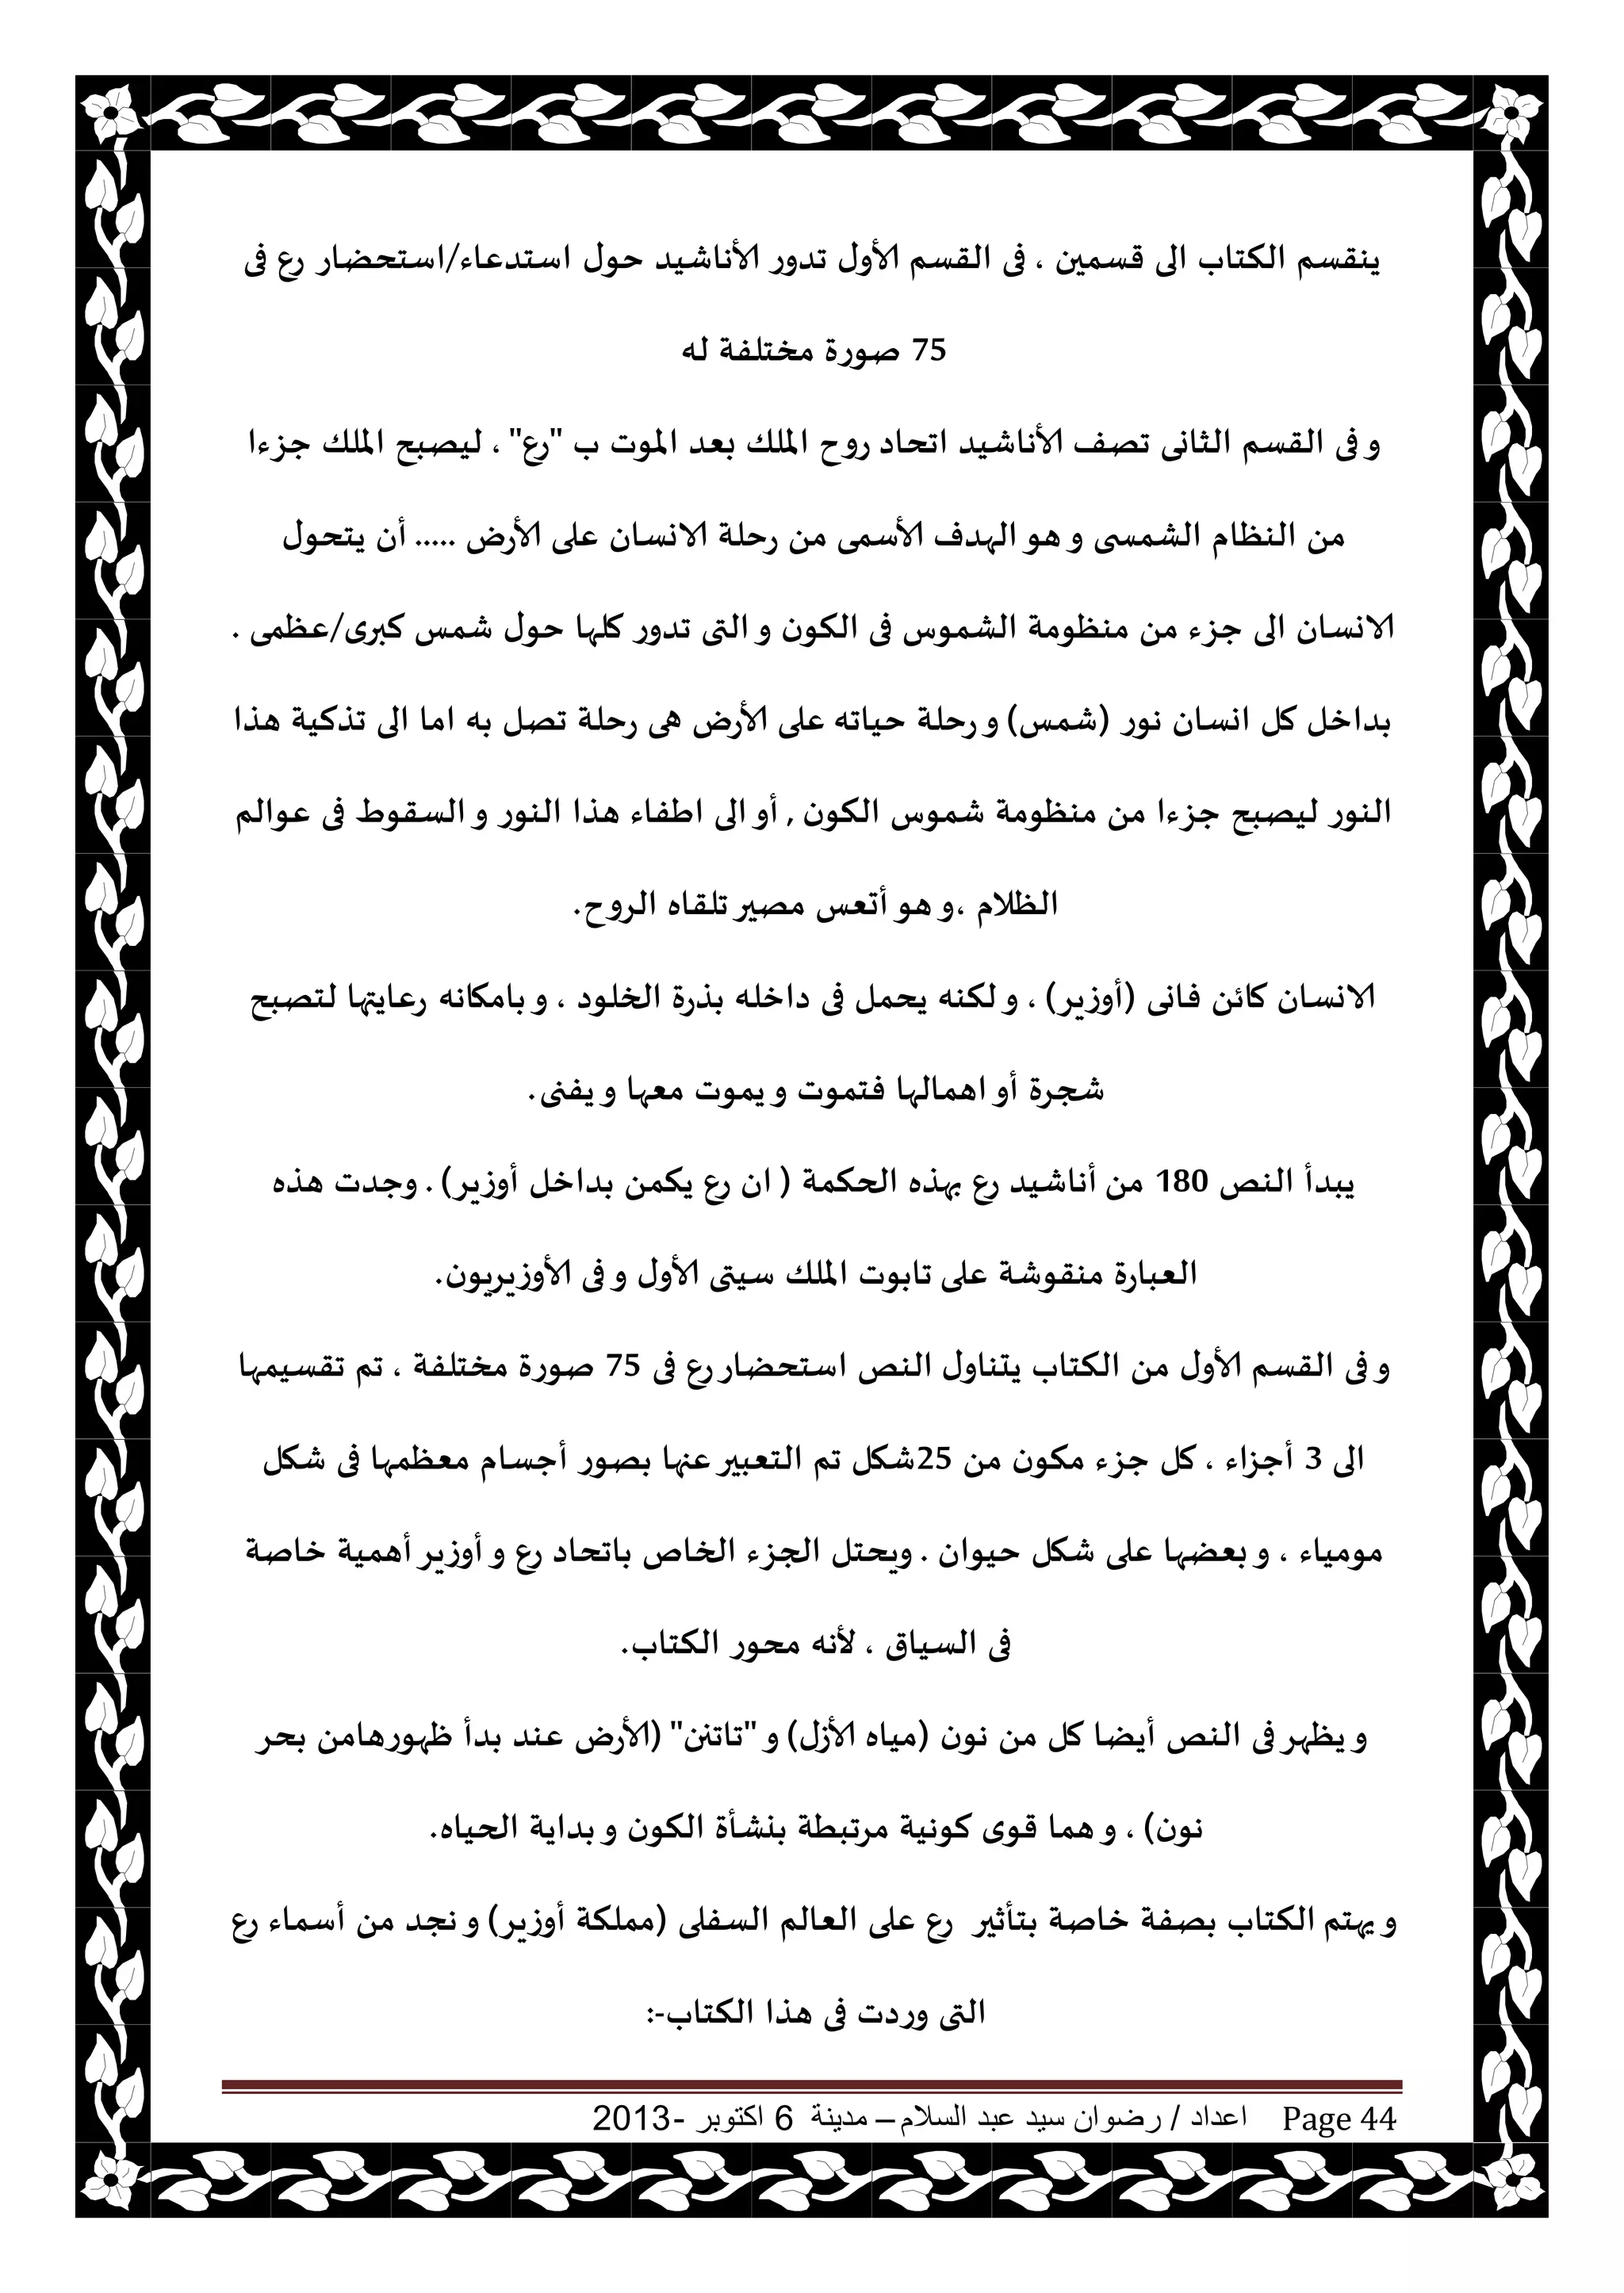 ينقسم الكتاب الى قسمين ، فى القسم الأول تدور الأناشيد حول استدعاء/استحضار رع فى
75 صورة مختلفة له
و فى القسم الثانى تصف الأناشيد اتحاد روح الملك بعد الموت ب "رع" ، ليصبح الملك جزءا
من النظام الشمسى و هو الهدف الأسمى من رحلة الانسان على الأرض ..... أن يتحول
الانسان الى جزء من منظومة الشموس فى الكون و التى تدور كلها حول شمس كبرى/عظمى .
بداخل كل انسان نور (شمس) و رحلة حياته على الأرض هى رحلة تصل به اما الى تذكية هذا
النور ليصبح جزءا من منظومة شموس الكون , أو الى اطفاء هذا النور و السقوط فى عوالم
الظلام ،و هو أتعس مصير تلقاه الروح.
الانسان كائن فانى (أوزير) ، و لكنه يحمل فى داخله بذرة الخلود ، و بامكانه رعايتها لتصبح
شجرة أو اهمالها فتموت و يموت معها و يفنى.
يبدأ النص 180 من أناشيد رع بهذه الحكمة ( ان رع يكمن بداخل أوزير) . وجدت هذه
العبارة منقوشة على تابوت الملك سيتى الأول و فى الأوزيريون.
و فى القسم الأول من الكتاب يتناول النص استحضار رع فى 75 صورة مختلفة ، تم تقسيمها
الى 3 أجزاء ، كل جزء مكون من 25شكل تم التعبير عنها بصور أجسام معظمها فى شكل
مومياء ، و بعضها على شكل حيوان . ويحتل الجزء الخاص باتحاد رع و أوزير أهمية خاصة
فى السياق ، لأنه محور الكتاب.
و يظهر فى النص أيضا كل من نون (مياه الأزل) و "تاتنن" (الأرض عند بدأ ظهورهامن بحر
نون) ، و هما قوى كونية مرتبطة بنشأة الكون و بداية الحياه.
و يهتم الكتاب بصفة خاصة بتأثير رع على العالم السفلى (مملكة أوزير) و نجد من أسماء رع
التى وردت فى هذا الكتاب-:
Page 44 اعداد / رضوان سيد عبد السلام – مدينة 6 اكتوبر - 2013